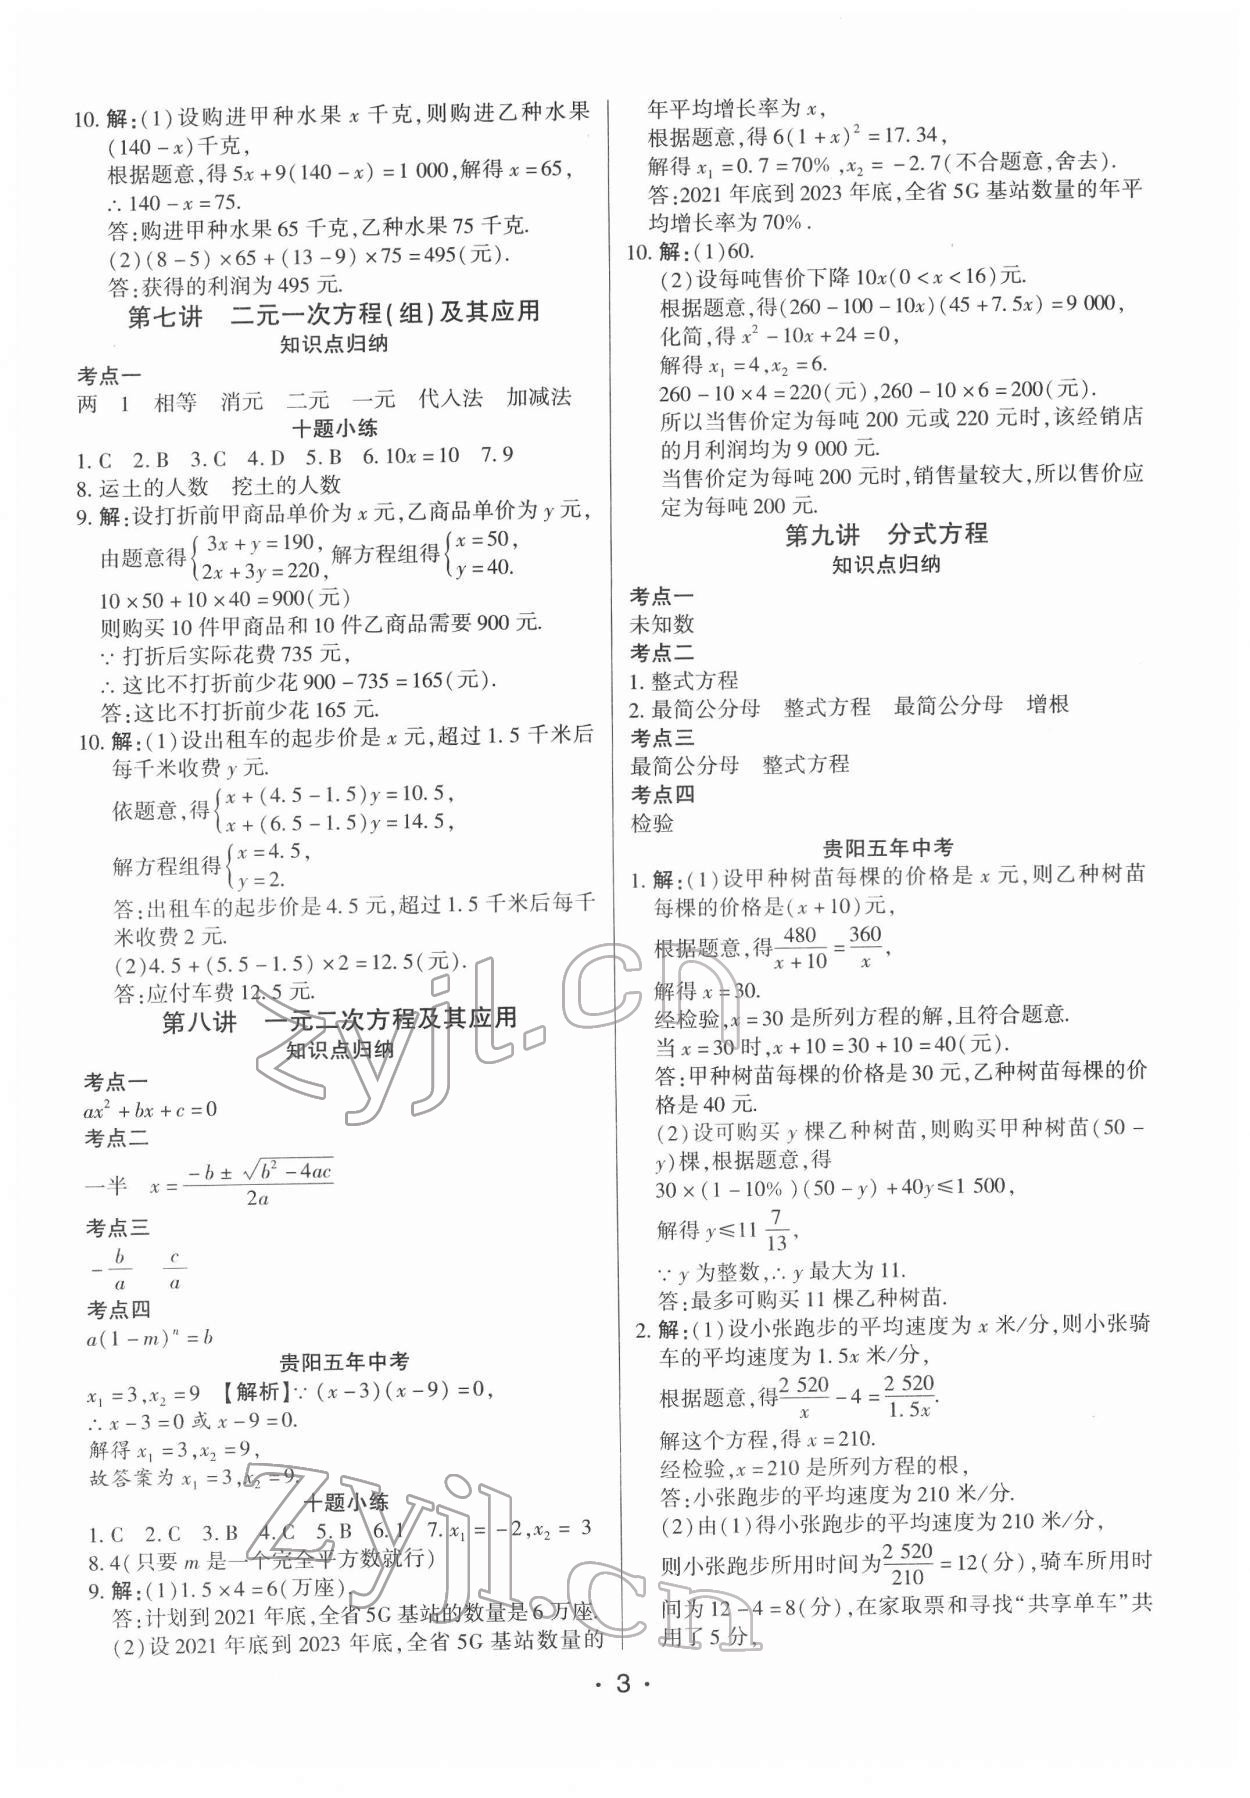 10. 解:(1)设购进甲种水果 x 千克,则购进乙种水果
(140-x)千克,
根据题意,得 5x+9(140-x)=1 000,解得 x=65,
∴140-x=75.
答:购进甲种水果 65 千克,乙种水果 75 千克.
(2)(8-5)×65+(13-9)×75=495(元).
答:获得的利润为 495 元.
第七讲 二元一次方程(组)及其应用
知识点归纳
考点一
两 1 相等 消元 二元 一元 代入法 加减法
十题小练
1. C 2. B 3. C 4. D 5. B 6. 10x=10 7. 9
8. 运土的人数 挖土的人数
9. 解:设打折前甲商品单价为 x 元,乙商品单价为 y 元,
由题意得{3x+y=190, 2x+3y=220, 解方程组得{x=50, y=40.
10×50+10×40=900(元)
则购买 10 件甲商品和 10 件乙商品需要 900 元.
∵打折后实际花费 735 元,
∴这比不打折前少花 900-735=165(元).
答:这比不打折前少花 165 元.
10. 解:(1)设出租车的起步价是 x 元,超过 1.5 千米后
每千米收费 y 元.
依题意,得{x+(4.5-1.5)y=10.5, x+(6.5-1.5)y=14.5,
解方程组得{x=4.5, y=2.
答:出租车的起步价是 4.5 元,超过 1.5 千米后每千
米收费 2 元.
(2)4.5+(5.5-1.5)×2=12.5(元).
答:应付车费 12.5 元.
第八讲 一元二次方程及其应用
知识点归纳
考点一
ax²+bx+c=0
考点二
一半 x=(-b±√(b²-4ac))/2a
考点三
-b/a c/a
考点四
a(1-m)ⁿ=b
贵阳五年中考
x₁=3,x₂=9 【解析】∵(x-3)(x-9)=0,
∴x-3=0 或 x-9=0.
解得 x₁=3,x₂=9,
故答案为 x₁=3,x₂=9.
十题小练
1. C 2. C 3. B 4. C 5. B 6. 1 7. x₁=-2,x₂=3
8. 4(只要 m 是一个完全平方数就行)
9. 解:(1)1.5×4=6(万座).
答:计划到 2021 年底,全省 5G 基站的数量是 6 万座.
(2)设 2021 年底到 2023 年底,全省 5G 基站数量的
年平均增长率为 x,
根据题意,得 6(1+x)²=17.34,
解得 x₁=0.7=70%,x₂=-2.7(不合题意,舍去).
答:2021 年底到 2023 年底,全省 5G 基站数量的年平
均增长率为 70%.
10. 解:(1)60.
(2)设每吨售价下降 10x(0<x<16)元.
根据题意,得(260-100-10x)(45+7.5x)=9 000,
化简,得 x²-10x+24=0,
解得 x₁=4,x₂=6.
260-10×4=220(元),260-10×6=200(元).
所以当售价定为每吨 200 元或 220 元时,该经销店
的月利润均为 9 000 元.
当售价定为每吨 200 元时,销售量较大,所以售价应
定为每吨 200 元.
第九讲 分式方程
知识点归纳
考点一
未知数
考点二
1. 整式方程
2. 最简公分母 整式方程 最简公分母 增根
考点三
最简公分母 整式方程
考点四
检验
贵阳五年中考
1. 解:(1)设甲种树苗每棵的价格是 x 元,则乙种树苗
每棵的价格是(x+10)元,
根据题意,得480/(x+10)=360/x,
解得 x=30.
经检验,x=30 是所列方程的解,且符合题意.
当 x=30 时,x+10=30+10=40(元).
答:甲种树苗每棵的价格是 30 元,乙种树苗每棵的价
格是 40 元.
(2)设可购买 y 棵乙种树苗,则购买甲种树苗(50-
y)棵,根据题意,得
30×(1-10%)(50-y)+40y≤1 500,
解得 y≤11 7/13,
∵y 为整数,∴y 最大为 11.
答:最多可购买 11 棵乙种树苗.
2. 解:(1)设小张跑步的平均速度为 x 米/分,则小张骑
车的平均速度为 1.5x 米/分,
根据题意,得2 520/x-4=2 520/1.5x.
解这个方程,得 x=210.
经检验,x=210 是所列方程的根,
答:小张跑步的平均速度为 210 米/分.
(2)由(1)得小张跑步的平均速度为 210 米/分,
则小张跑步所用时间为2 520/210=12(分),骑车所用时
间为 12-4=8(分),在家取票和寻找“共享单车”共
用了 5 分,
· 3 ·
zyjl.cn
zyjl.cn